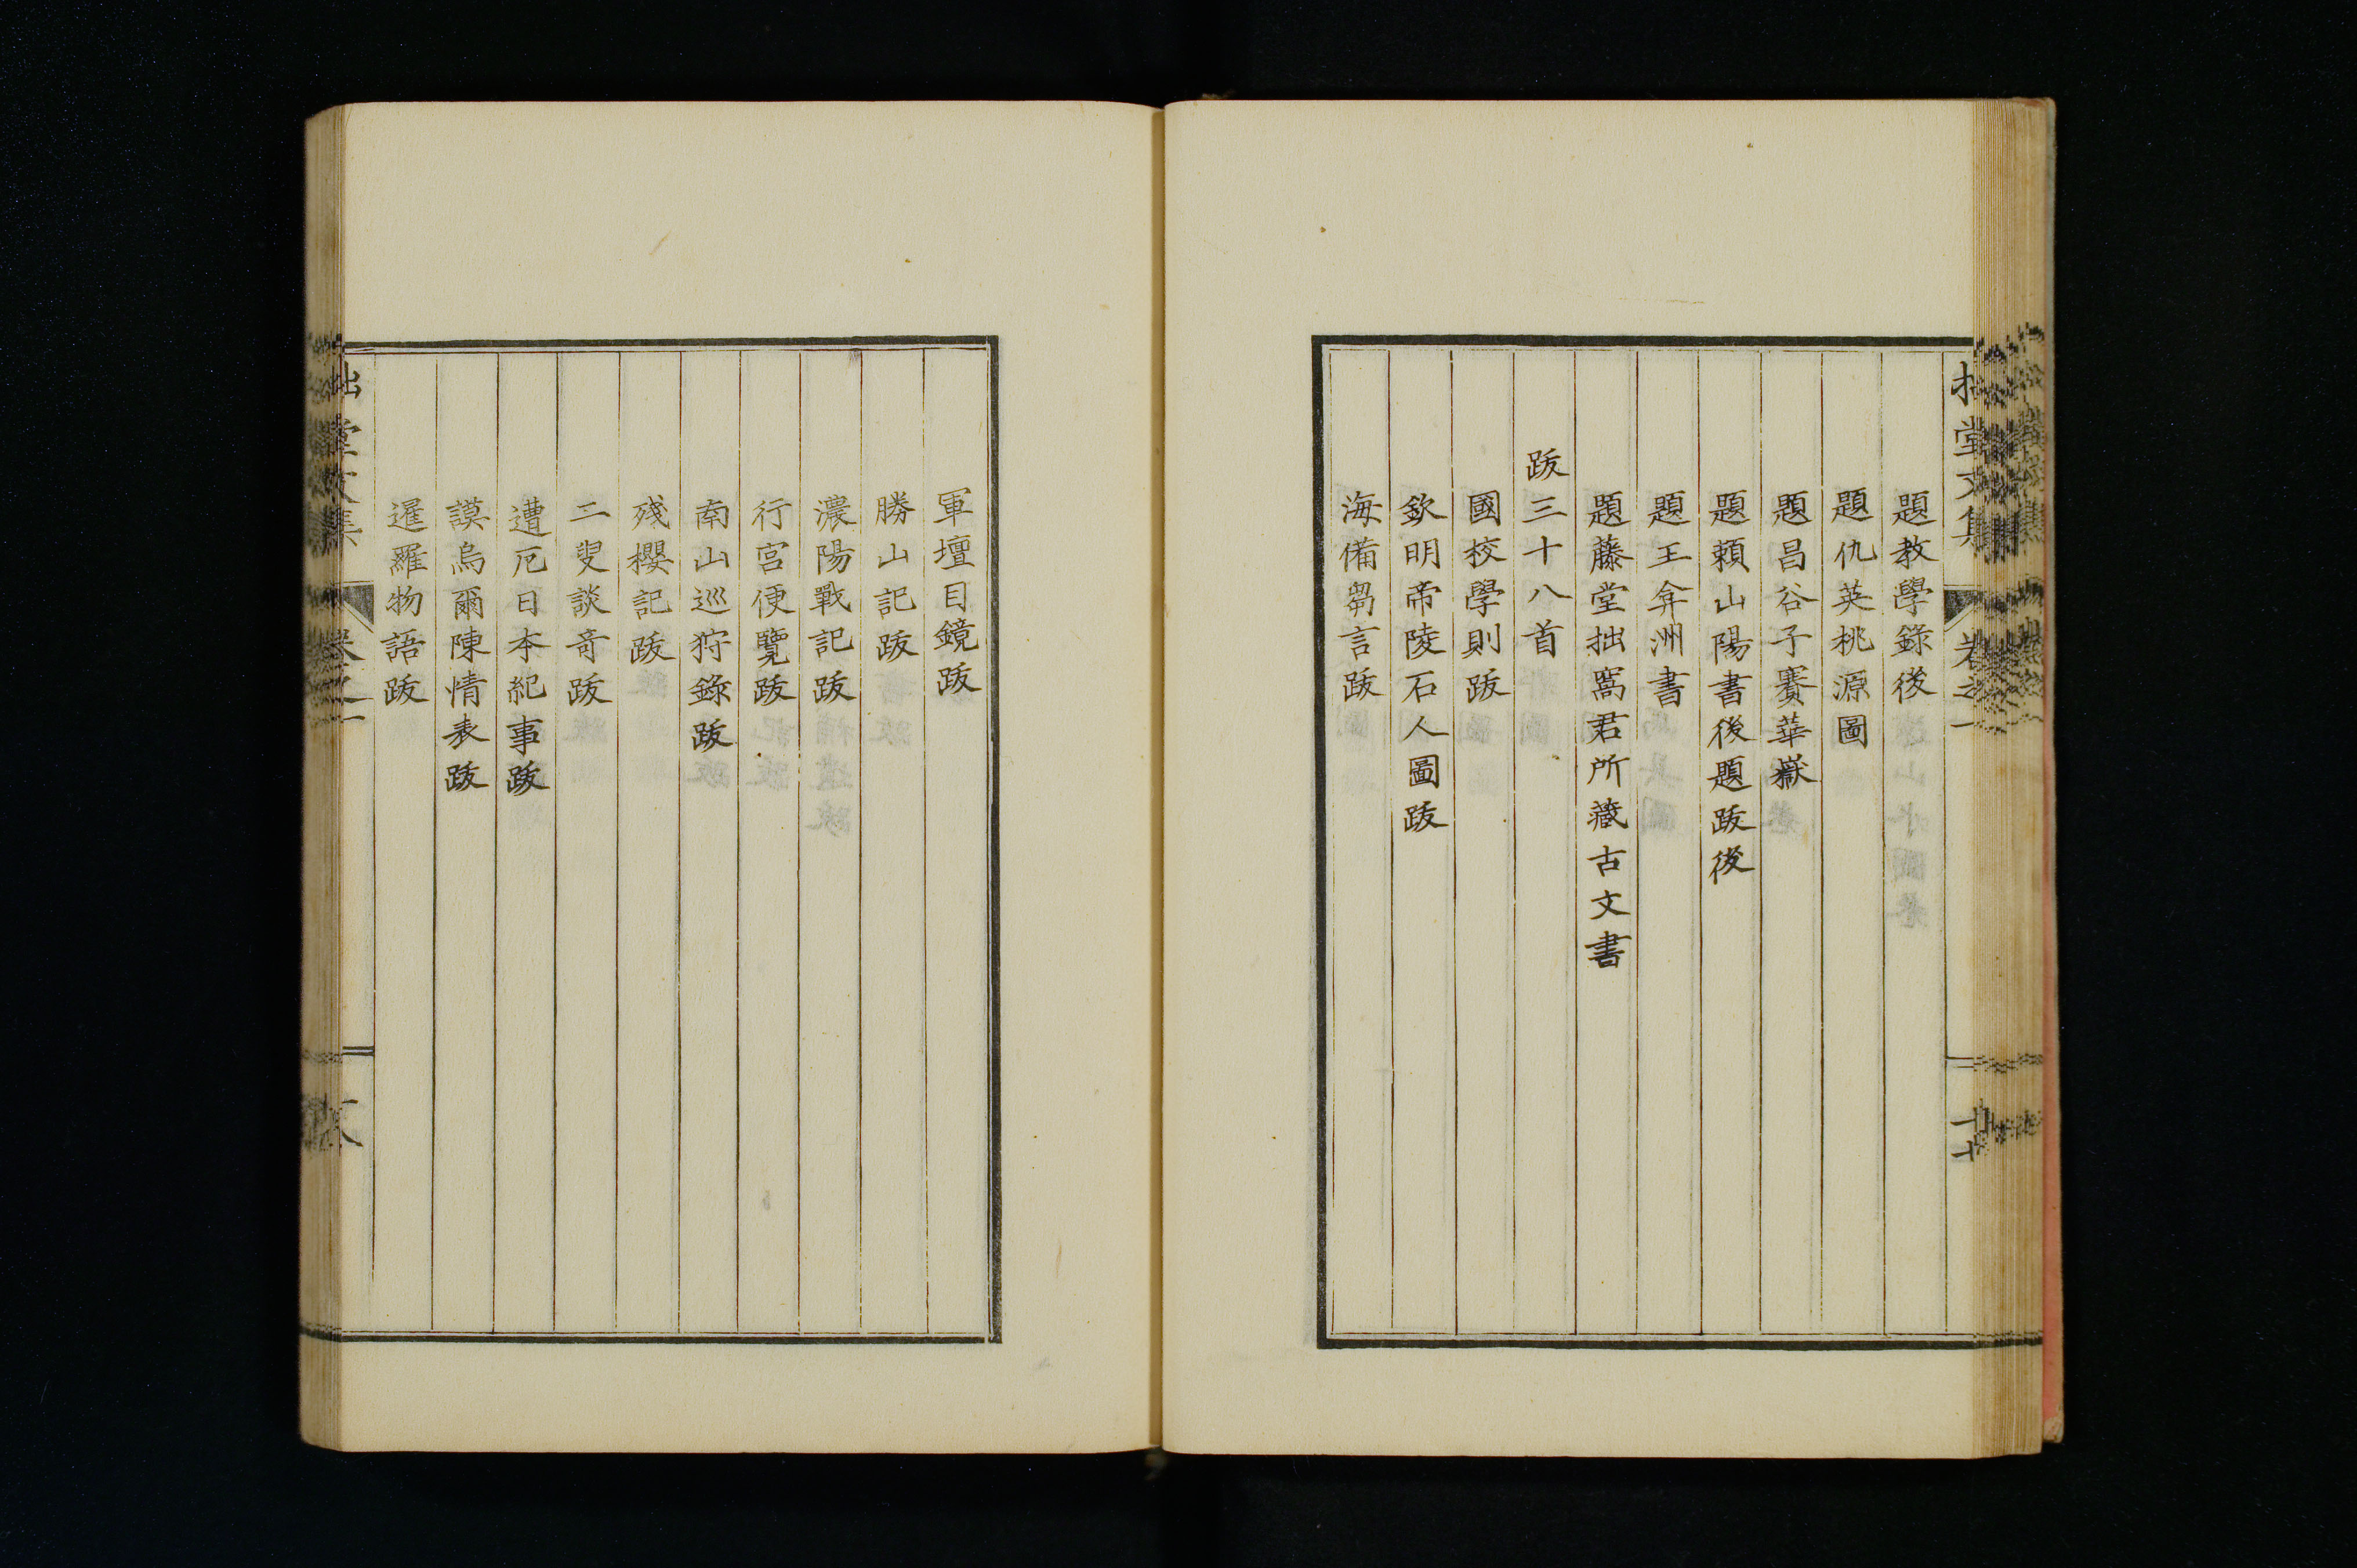 拙堂文集 卷之一
題教學錄後
題仇英桃源圖
題昌谷子賽華嶽
題賴山陽書後題跋後
題王弇洲書
題藤堂拙窩君所藏古文書
跋三十八首
國校學則跋
欽明帝陵石人圖跋
海備芻言跋
軍壇目鏡跋
勝山記跋
濃陽戰記跋
行宮便覽跋
南山巡狩錄跋
殘櫻記跋
二叟談奇跋
遭厄日本紀事跋
謨烏爾陳情表跋
暹羅物語跋
拙堂文集 卷之一